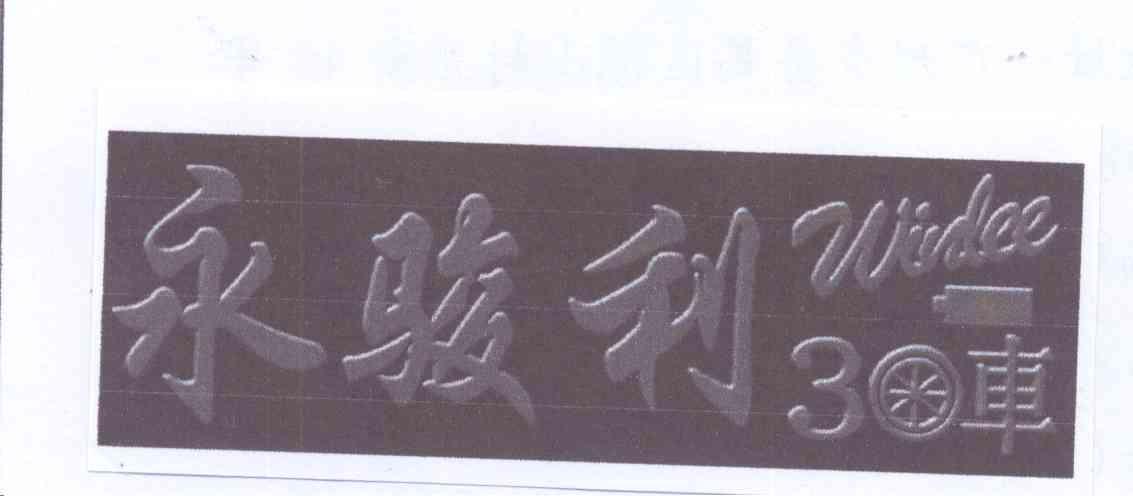 永駿利
Widee
30車